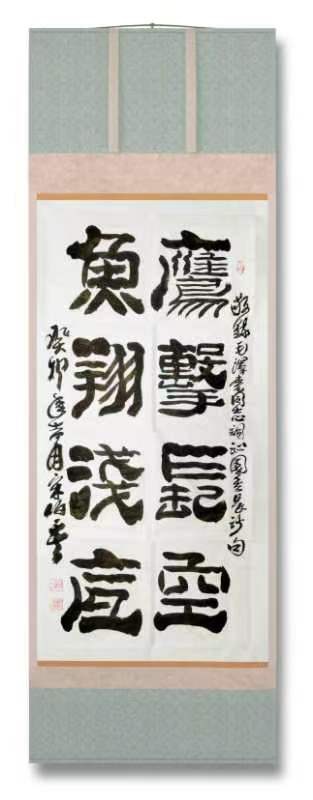 敬錄毛澤東同志詞沁園春長沙句
鷹擊長空
魚翔淺底
癸卯年月宋